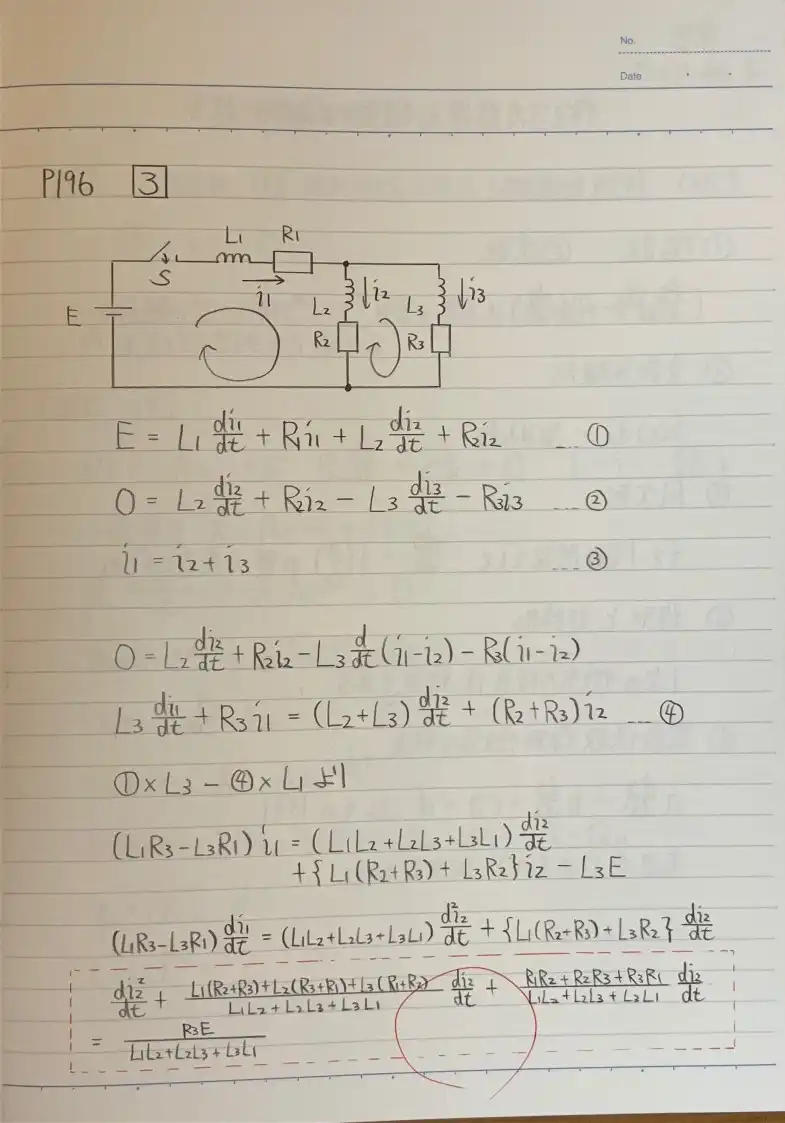 No.
Date
P196 3
L1 R1
S
i1
E
L2 i2
L3 i3
R2
R3
E = L1 di1/dt + R1i1 + L2 di2/dt + R2i2 ... ①
0 = L2 di2/dt + R2i2 - L3 di3/dt - R3i3 ... ②
i1 = i2 + i3 ... ③
0 = L2 di2/dt + R2i2 - L3 d/dt (i1-i2) - R3(i1-i2)
L3 di1/dt + R3i1 = (L2+L3) di2/dt + (R2+R3)i2 ... ④
①×L3 - ④×L1 より
(L1R3-L3R1)i1 = (L1L2+L2L3+L3L1) di2/dt
+{L1(R2+R3) + L3R2}i2 - L3E
(L1R3-L3R1) di1/dt = (L1L2+L2L3+L3L1) d²i2/dt + {L1(R2+R3)+L3R2} di2/dt
di2²/dt + L1(R2+R3)+L2(R3+R1)+L3(R1+R2)/L1L2+L2L3+L3L1 di2/dt + R1R2+R2R3+R3R1/L1L2+L2L3+L2L1 di2/dt
= R3E/L1L2+L2L3+L3L1